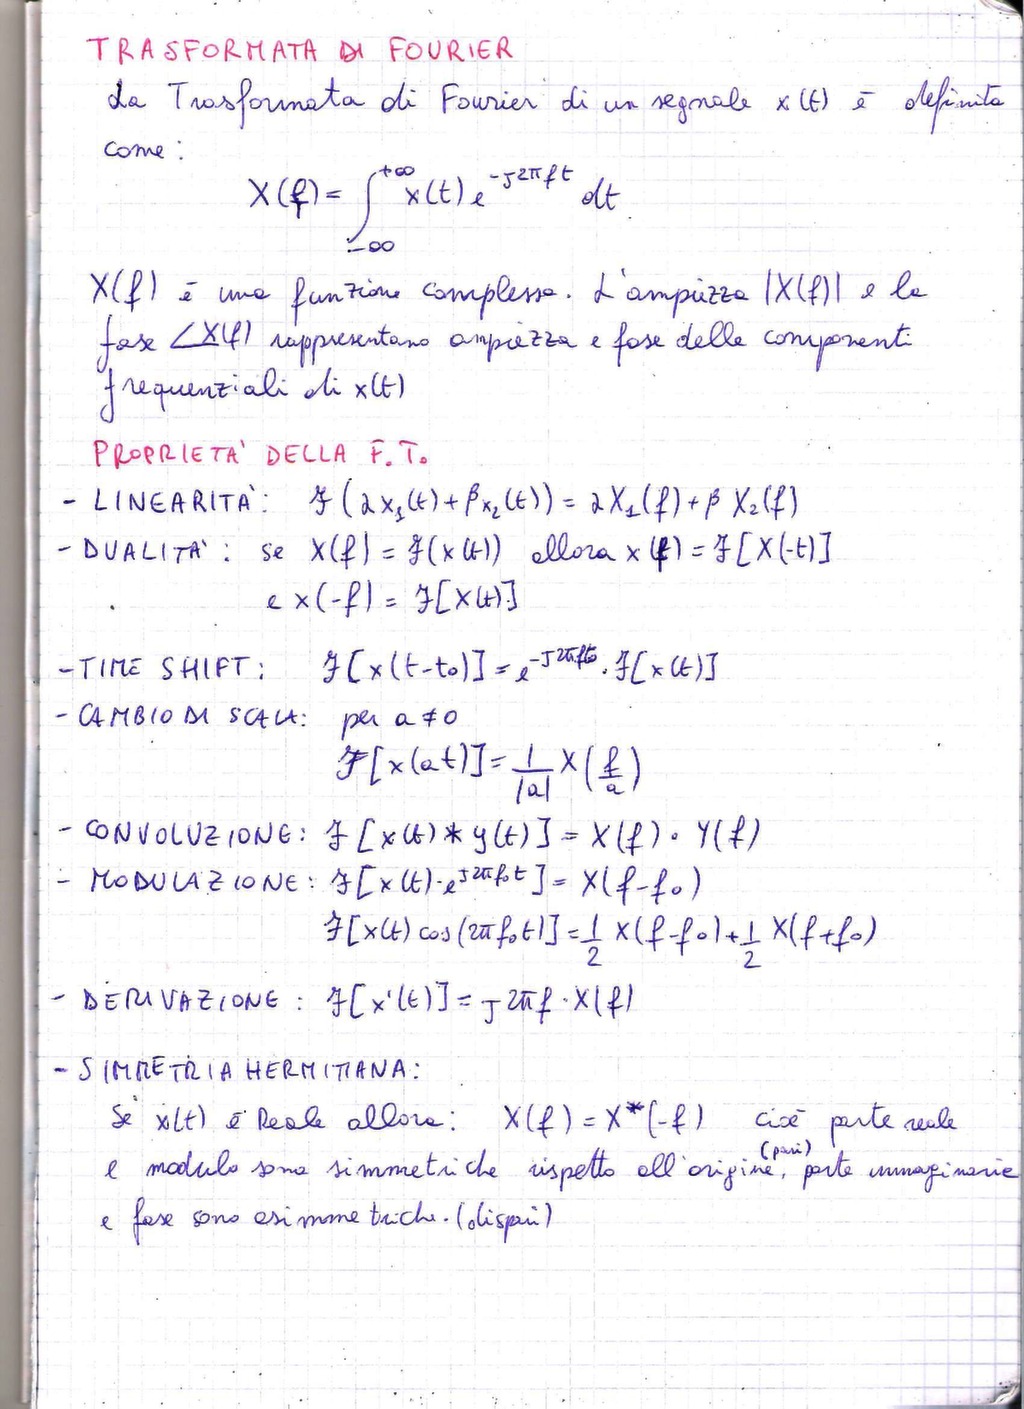 TRASFORMATA DI FOURIER
La Trasformata di Fourier di un segnale x(t) è definita
come:
X(f) = ∫_{-∞}^{+∞} x(t) e^{-j2πft} dt
X(f) è una funzione complessa. L'ampiezza |X(f)| e la
fase ∠X(f) rappresentano ampiezza e fase delle componenti
frequenziali di x(t)
PROPRIETA' DELLA F.T.
- LINEARITA': F(αx₁(t)+βx₂(t)) = αX₁(f)+βX₂(f)
- DUALITA': se X(f) = F(x(t)) allora x(f) = F[X(-t)]
e x(-f) = F[X(t)]
- TIME SHIFT: F[x(t-t₀)] = e^{-j2πft₀} · F[x(t)]
- CAMBIO DI SCALA: per a ≠ 0
F[x(at)] = 1/|a| X(f/a)
- CONVOLUZIONE: F[x(t) * y(t)] = X(f) · Y(f)
- MODULAZIONE: F[x(t) · e^{j2πf₀t}] = X(f-f₀)
F[x(t) cos(2πf₀t)] = 1/2 X(f-f₀) + 1/2 X(f+f₀)
- DERIVAZIONE: F[x'(t)] = j2πf · X(f)
- SIMMETRIA HERMITIANA:
Se x(t) è Reale allora: X(f) = X*(-f) cioè parte reale
e modulo sono simmetriche rispetto all'origine (pari), parte immaginarie
e fase sono asimmetriche. (dispari)